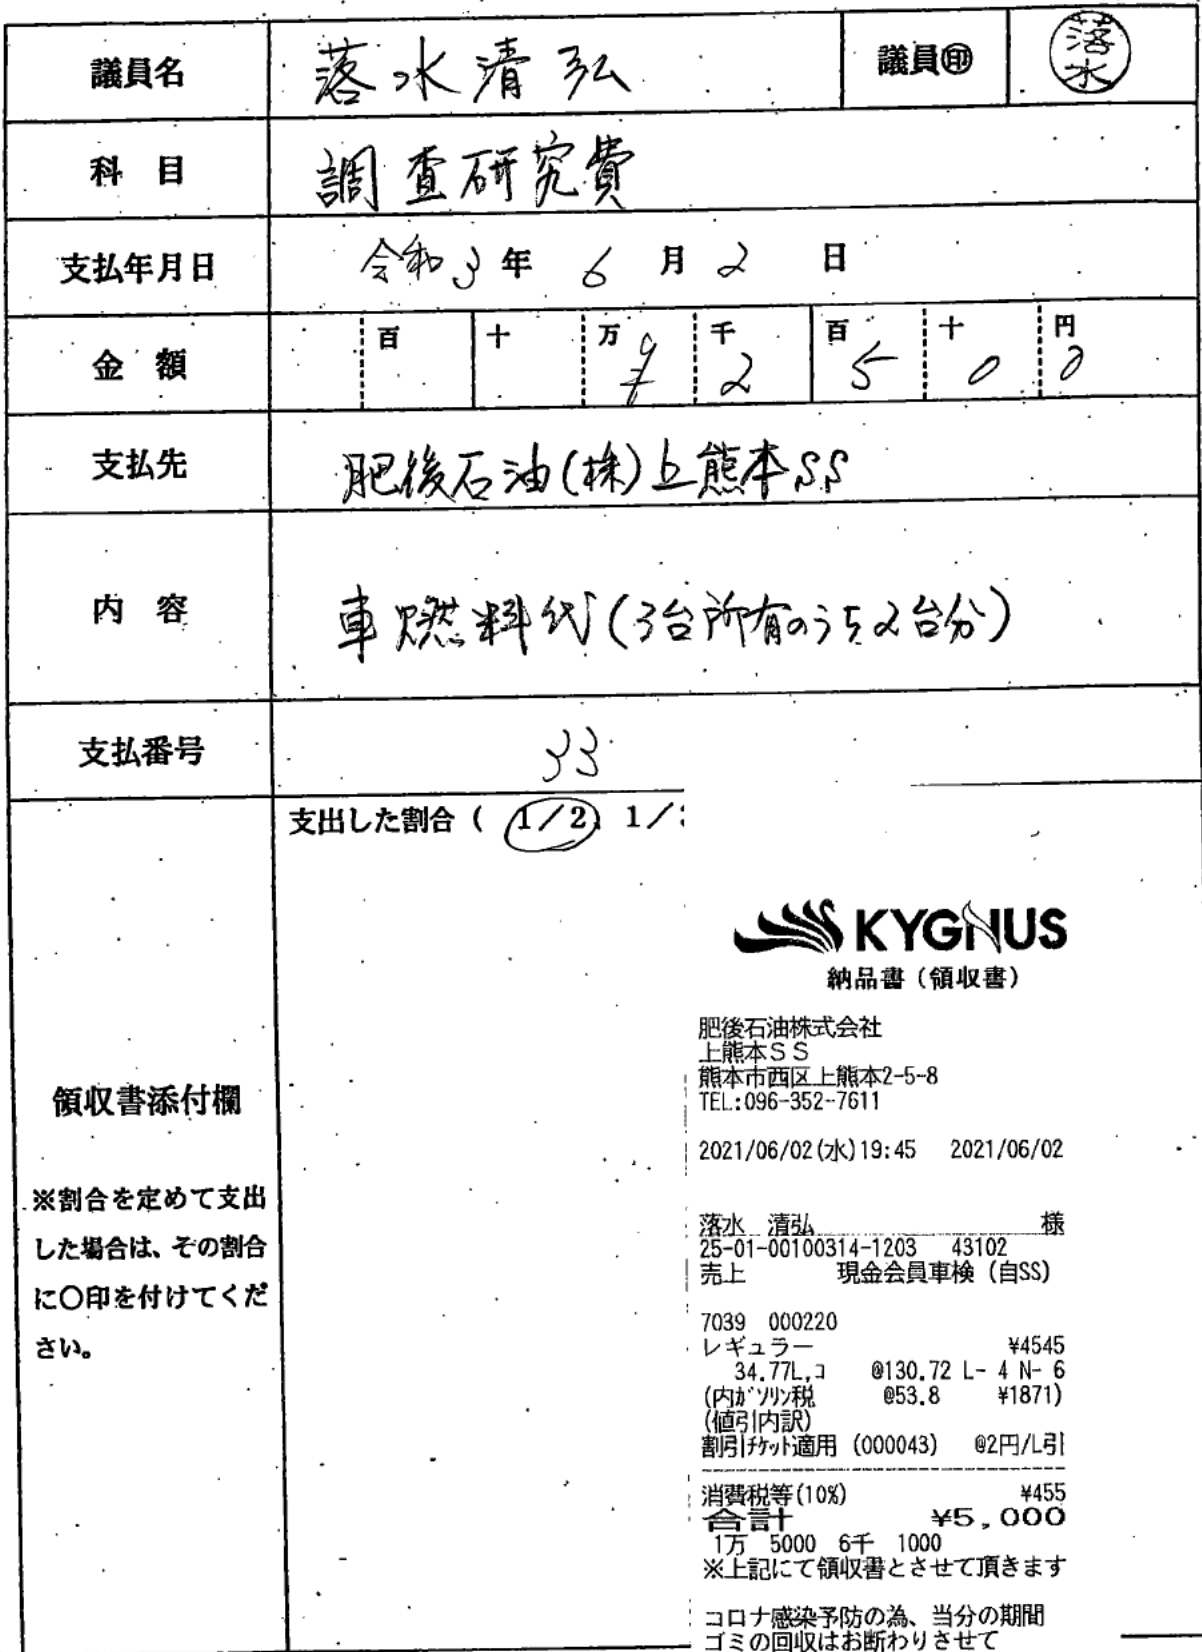 議員名 落水清弘 議員㊞ 落水
科 目 調査研究費
支払年月日 令和3年 6 月 2 日
金 額 百 十 万 ¥ 千 2 百 5 十 0 円 0
支払先 肥後石油(株)上熊本SS
内 容 車燃料代(3台所有のうち2台分)
支払番号 33
支出した割合( 1/2) 1/
KYGNUS
納品書(領収書)
肥後石油株式会社
上熊本SS
熊本市西区上熊本2-5-8
TEL:096-352-7611
2021/06/02(水)19:45 2021/06/02
落水 清弘 様
25-01-00100314-1203 43102
売上 現金会員車検(自SS)
7039 000220
レギュラー ¥4545
34.77L,コ @130.72 L- 4 N- 6
(内ガソリン税 @53.8 ¥1871)
(値引内訳)
割引チケット適用 (000043) @2円/L引
消費税等(10%) ¥455
合計 ¥5,000
1万 5000 6千 1000
※上記にて領収書とさせて頂きます
コロナ感染予防の為、当分の期間
ゴミの回収はお断わりさせて
領収書添付欄
※割合を定めて支出
した場合は、その割合
に〇印を付けてくだ
さい。